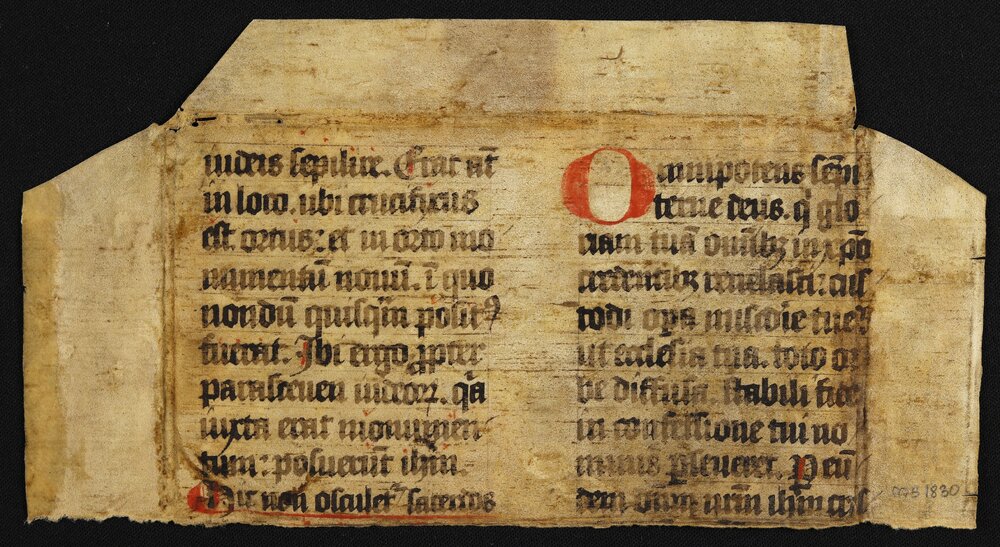 iudeis sepilire. Erat aūt
in loco. ubi crucifixus
est ortus: et in orto mo
numentū nouū. ī quo
nondū quisq̄m posit⁹
fuerat. Ibi ergo ꝓpter
parasceuen iudeoꝝ. q̄a
iuxta erat monumen
tum: posuerūt ihm̄.
Hic non osculet᷑ sacerdos
Omnipotens sēpi
terne deus. q̄ glo
riam tuā om̄ībꝫ in xp̄o
credentibꝫ reuelasti: cus
todi oꝑa mīscd̄ie tue
ut ecclesia tua. toto or
be diffusa. stabili fide
in confessione tui no
minis ꝑseueret. P eū
dem dn̄m nr̄m ihm̄ cris
ms 1830